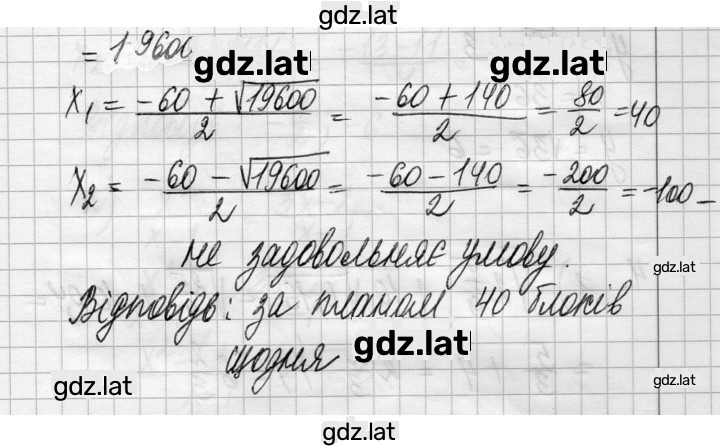 gdz.lat
= 19600
gdz.lat gdz.lat
x₁ = (-60 + √19600)/2 = (-60 + 140)/2 = 80/2 = 40
x₂ = (-60 - √19600)/2 = (-60 - 140)/2 = -200/2 = -100 –
не задовольняє умову.
gdz.lat
Відповідь: за планом 40 блоків
щодня
gdz.lat
gdz.lat
gdz.lat
gdz.lat